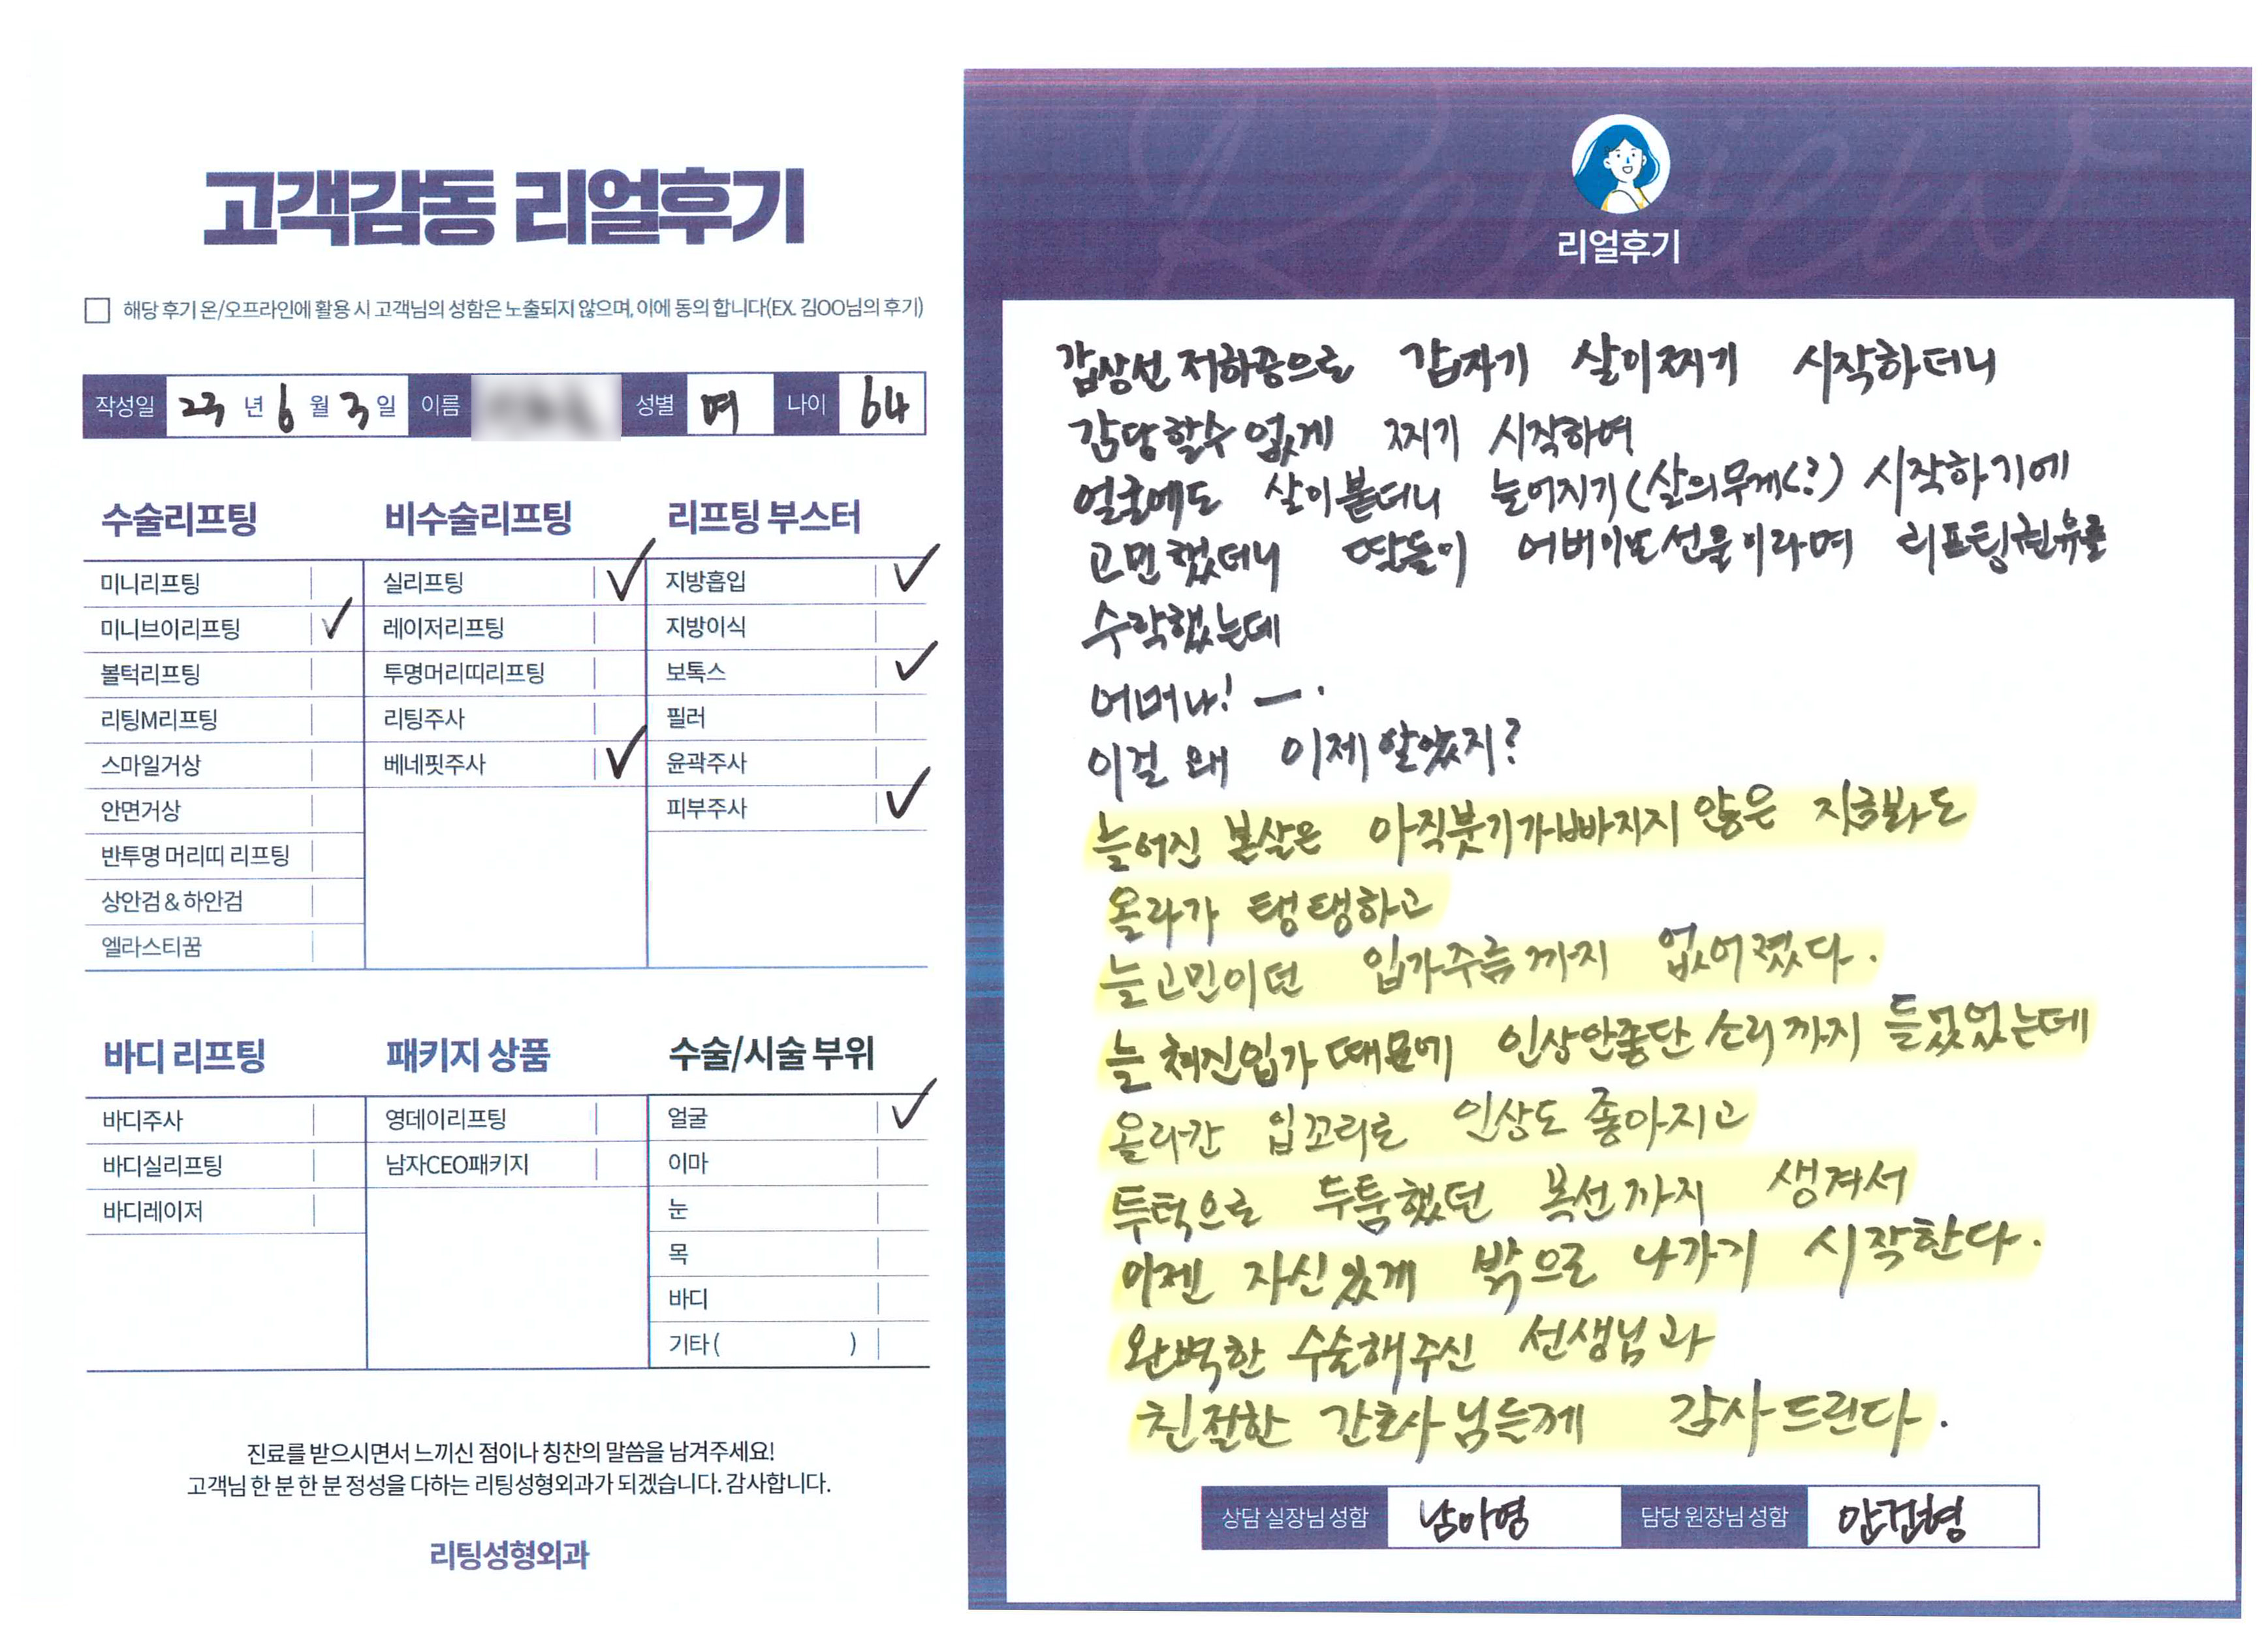 고객감동 리얼후기
해당 후기 온/오프라인에 활용 시 고객님의 성함은 노출되지 않으며, 이에 동의 합니다(EX. 김OO님의 후기)
작성일 23 년 6 월 3 일 이름 성별 여 나이 64
수술리프팅 비수술리프팅 리프팅 부스터
미니리프팅 실리프팅 지방흡입
미니브이리프팅 레이저리프팅 지방이식
볼턱리프팅 투명머리띠리프팅 보톡스
리팅M리프팅 리팅주사 필러
스마일거상 베네핏주사 윤곽주사
안면거상 피부주사
반투명 머리띠 리프팅
상안검 & 하안검
엘라스티꿈
바디 리프팅 패키지 상품 수술/시술 부위
바디주사 영데이리프팅 얼굴
바디실리프팅 남자CEO패키지 이마
바디레이저 눈
목
바디
기타 ( )
진료를 받으시면서 느끼신 점이나 칭찬의 말씀을 남겨주세요!
고객님 한 분 한 분 정성을 다하는 리팅성형외과가 되겠습니다. 감사합니다.
리팅성형외과
Review
리얼후기
갑상선 저하증으로 갑자기 살이찌기 시작하더니
감당할수 없게 찌기 시작하여
얼굴에도 살이붙더니 늘어지기(살의무게(?) 시작하기에
고민했더니 딸들이 어버이날선물이라며 리프팅권유를
수락했는데
어머나! ㅡ.
이걸 왜 이제알았지?
늘어진 볼살은 아직붓기가빠지지 않은 지금봐도
올라가 탱탱하고
늘고민이던 입가주름까지 없어졌다.
늘 쳐진입가 때문에 인상안좋단 소리까지 들었었는데
올라간 입꼬리로 인상도 좋아지고
투턱으로 두툼했던 목선까지 생겨서
이젠 자신있게 밖으로 나가기 시작한다.
완벽한 수술해주신 선생님과
친절한 간호사님들께 감사드린다.
상담 실장님 성함 남아영 담당 원장님 성함 안건형